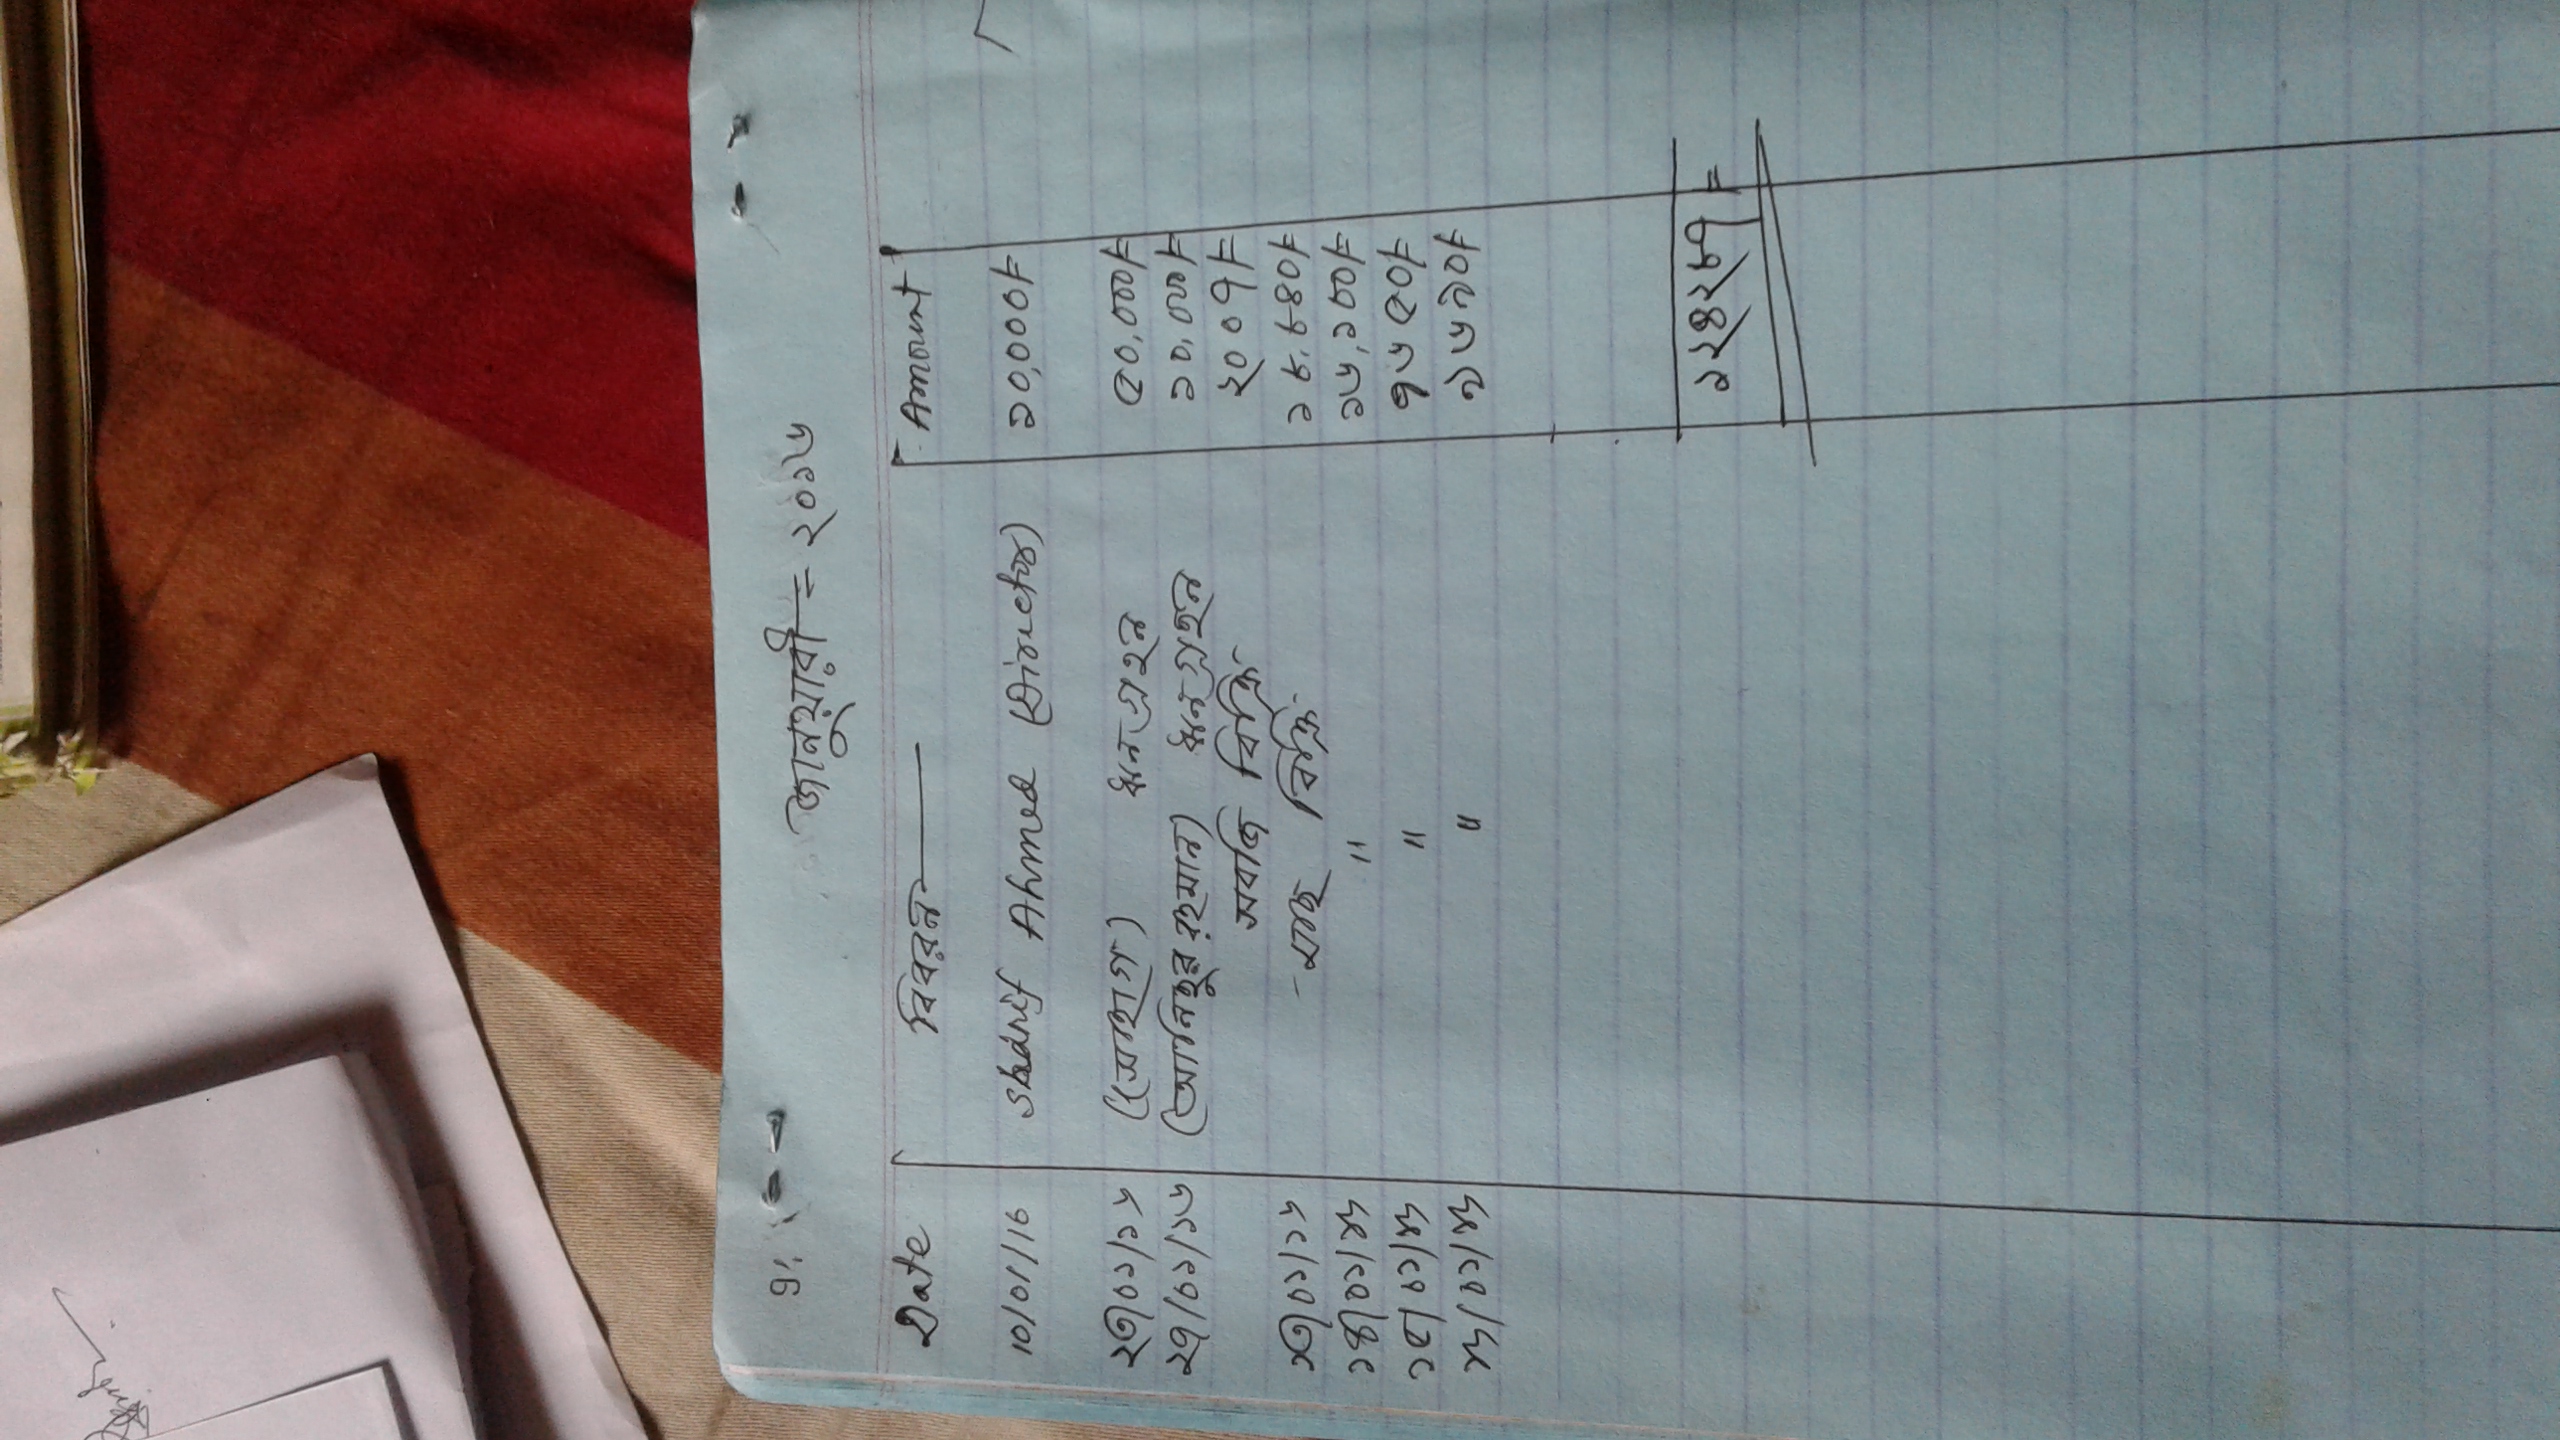 জানুয়ারী = ২০১৬
Date বিবরন Amount
10/01/16 Sharif Ahmed (Director) ১০,০০০/=
২৩/০১/১৬ (সোহাগ) ঋন গ্রহন ৫০,০০০/=
২৭/০১/১৬ (আনিছুর রহমান) ঋন গ্রহন ১০,০০০/=
সবজি বিক্রি ২০০৭/=
১৩/০১/১৬ মাছ বিক্রি ১৮,৮৪০/=
১৪/০১/১৬ " ১৬,১০০/=
১৫/০১/১৬ " ৭৬৫০/=
১৬/০১/১৬ " ৯৬৯০/=
১২৪২৮৭/=